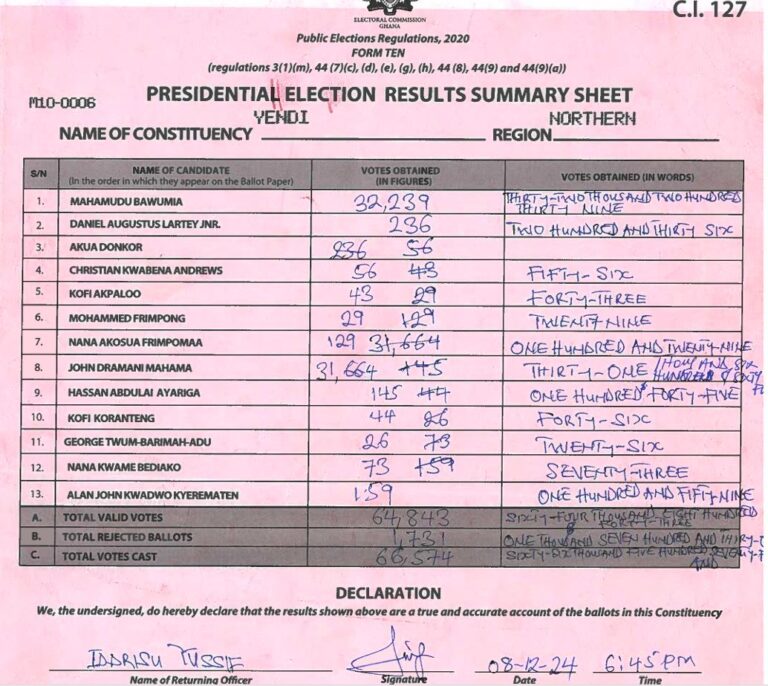 C.I. 127
ELECTORAL COMMISSION
GHANA
Public Elections Regulations, 2020
FORM TEN
(regulations 3(1)(m), 44 (7)(c), (d), (e), (g), (h), 44 (8), 44(9) and 44(9)(a))
M10-0006
PRESIDENTIAL ELECTION RESULTS SUMMARY SHEET
NAME OF CONSTITUENCY YENDI REGION NORTHERN
S/N NAME OF CANDIDATE (In the order in which they appear on the Ballot Paper) VOTES OBTAINED (IN FIGURES) VOTES OBTAINED (IN WORDS)
1. MAHAMUDU BAWUMIA 32,239 THIRTY-TWO THOUSAND TWO HUNDRED THIRTY NINE
2. DANIEL AUGUSTUS LARTEY JNR. 236 TWO HUNDRED AND THIRTY SIX
3. AKUA DONKOR 236 56
4. CHRISTIAN KWABENA ANDREWS 56 43 FIFTY-SIX
5. KOFI AKPALOO 43 29 FORTY-THREE
6. MOHAMMED FRIMPONG 29 129 TWENTY NINE
7. NANA AKOSUA FRIMPOMAA 129 31,664 ONE HUNDRED AND TWENTY-NINE
8. JOHN DRAMANI MAHAMA 31,664 145 THIRTY-ONE THOUSAND SIX HUNDRED & SIXTY
9. HASSAN ABDULAI AYARIGA 145 44 ONE HUNDRED & FORTY-FIVE
10. KOFI KORANTENG 44 26 FORTY-SIX
11. GEORGE TWUM-BARIMAH-ADU 26 73 TWENTY-SIX
12. NANA KWAME BEDIAKO 73 159 SEVENTY-THREE
13. ALAN JOHN KWADWO KYEREMATEN 159 ONE HUNDRED AND FIFTY-NINE
A. TOTAL VALID VOTES 64,843 SIXTY-FOUR THOUSAND EIGHT HUNDRED & FORTY-THREE
B. TOTAL REJECTED BALLOTS 1,731 ONE THOUSAND SEVEN HUNDRED AND THIRTY-
C. TOTAL VOTES CAST 66,574 SIXTY-SIX THOUSAND FIVE HUNDRED SEVENTY- AND
DECLARATION
We, the undersigned, do hereby declare that the results shown above are a true and accurate account of the ballots in this Constituency
IDDRISU YUSSIF 08-12-24 6:45PM
Name of Returning Officer Signature Date Time